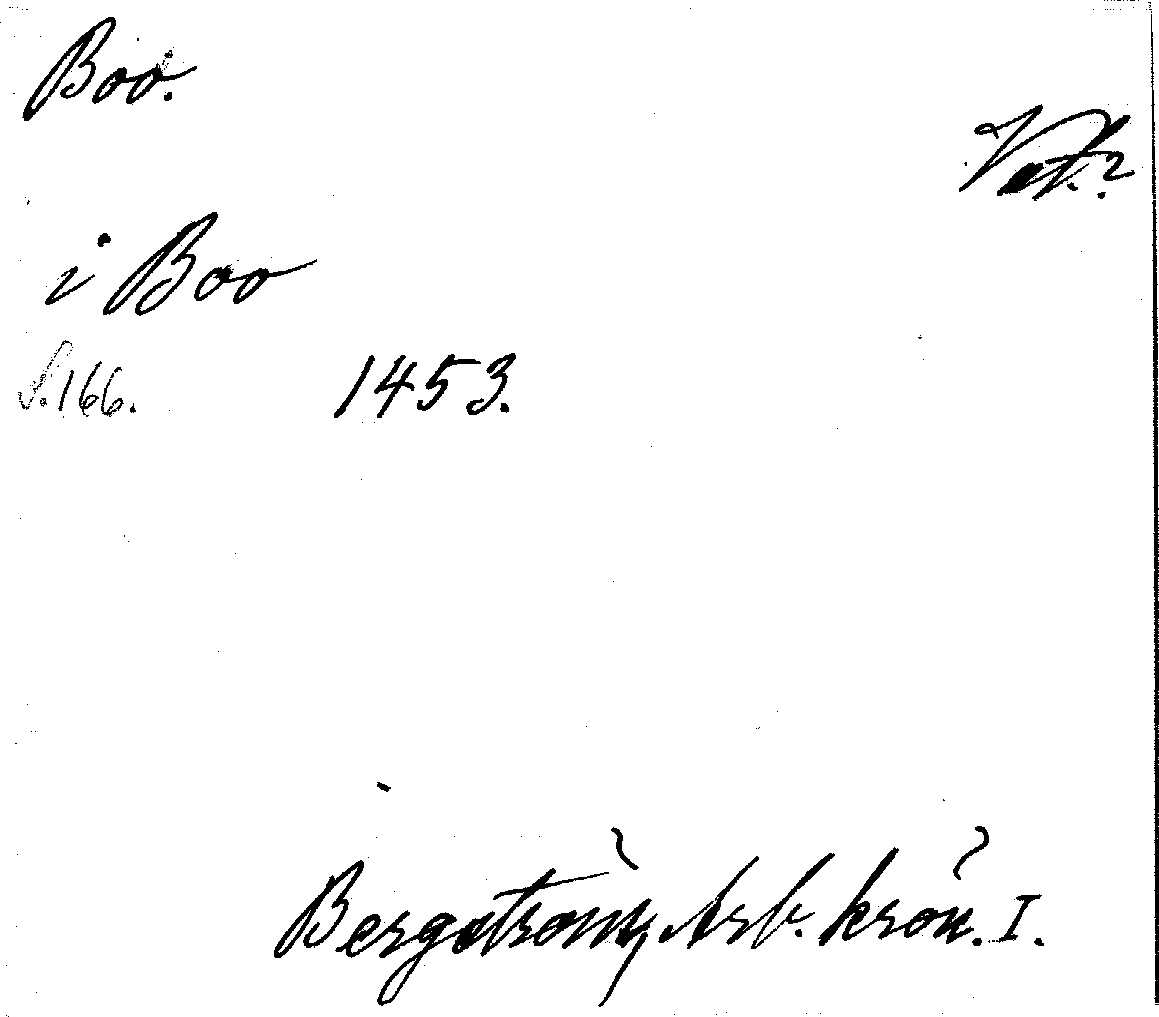 Boo.
Vat.?
i Boo
S. 166. 1453.
Bergström, Arb. krön. I.